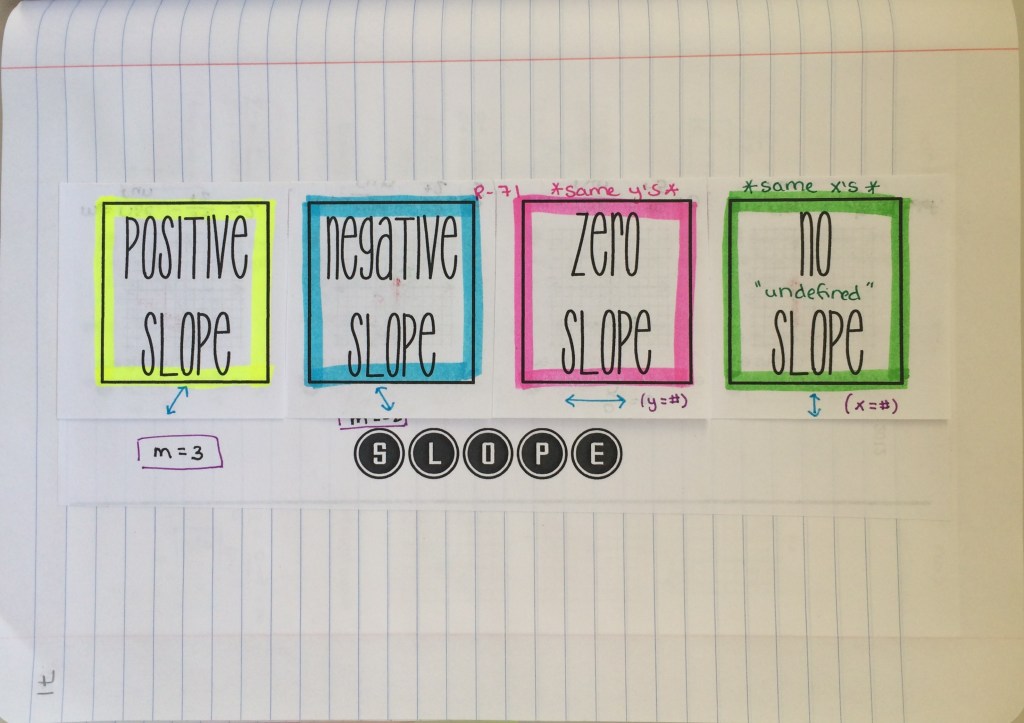 R-71 *same y's* *same x's *
POSITIVE
SLOPE
negative
SLOPE
zero
SLOPE
(y=#)
no
"undefined"
SLOPE
(x=#)
m = 3
SLOPE